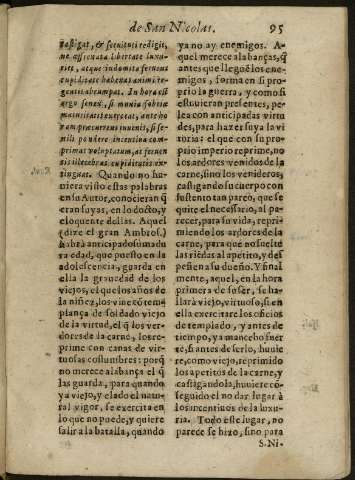 de San Nicolas. 95
castigat, & seruituti redigit,
ne affrenata libertate luxu-
riet, atque indomita ferueus
cupiditate habenas animi re-
gentis abrumpat. In hora est
ergo senex, si munia sobriæ
maturitatis
rum præcurrens iuuenis, si se-
nili pudere incentiua com-
primat voluptatum, ac feruen
tis illecebras cupiditatis ex-
tinguat. Quando no hu
uiera visto estas palabras
en su Autor, conocieran q̃
eran suyas, en lo docto, y
eloquente dellas. Aquel
(dize el gran Ambros.)
habrà anticipado su madu
ra edad, que puesto en la
adolescencia, guarda en
ella la grauedad de los
viejos, el que los años de
la niñez, los vine cõ tem-
plança de soldado viejo
de la virtud, el q̃ los ver-
dores de la carne, los re-
prime con canas de vir-
tuosas costumbres: porq̃
no merece alabança el q̃
las guarda, para quando
ya viejo, y elado el natu-
ral vigor, se exercita en
lo que no puede, y quiere
salir a la batalla, quando
ya no ay enemigos. A-
quel merece alabanças, q̃
antes que lleguẽ los ene-
migos, forma en si pro-
prio la guerra, y como si
estuuieran presentes, pe-
lea con anticipadas virtu
des, para hazer suya la vi
toria: el que con su pro-
prio imperio reprime, no
los ardores venidos de la
carne, sino los venideros,
castigando su cuerpo con
sustento tan parco, que se
quite el necessario, al pa-
recer, para su vida, repri-
miendo los ardores de la
carne, para que no suelte
las riẽdas al apetito, y des
peñen a su dueño. Y final
mente, aquel, en la hora
primera de su ser, se ha-
llarà viejo, virtuoso, si en
ella exercitare los oficios
de templado, y antes de
tiempo, ya mancebo sne
rẽ, si antes de serlo, huuie
re, como viejo, reprimido
los apetitos de la carne, y
castigãdola, huuiere cõ-
seguido el no dar lugar à
los incentiuos de la luxu-
ria. Todo este lugar, no
parece se hizo, sino para
S. Ni-